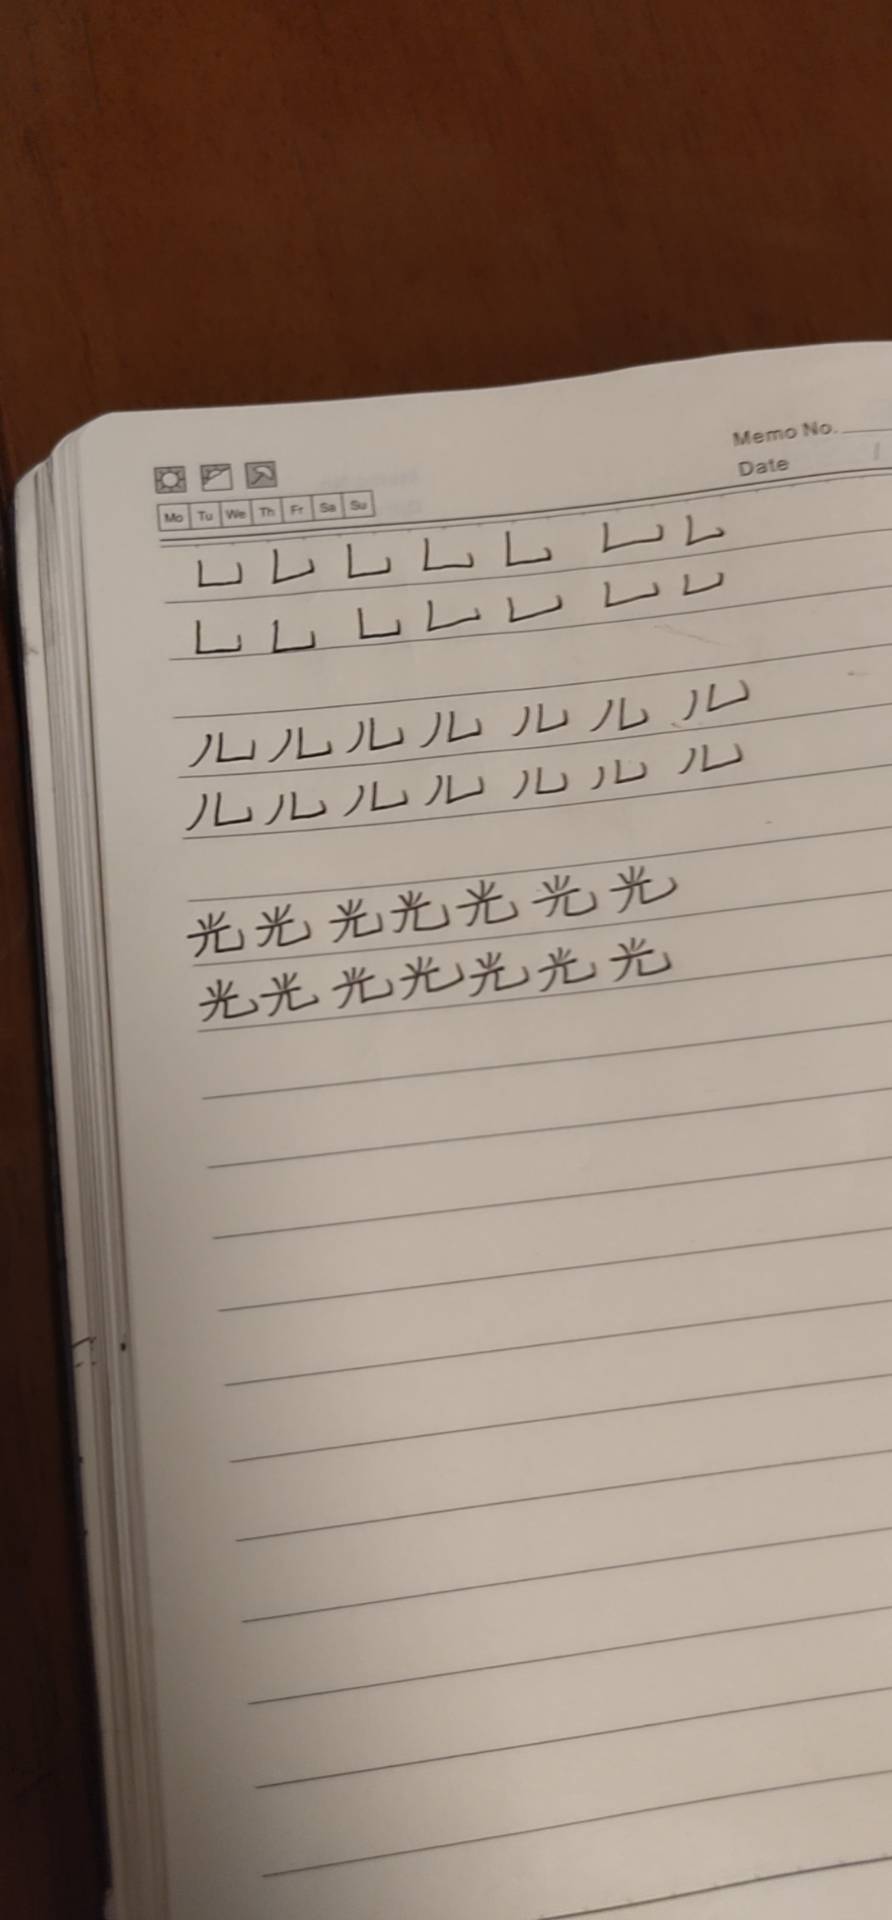 Memo No.
Date
Mo Tu We Th Fr Sa Su
乚 乚 乚 乚 乚 乚 乚
乚 乚 乚 乚 乚 乚 乚
儿 儿 儿 儿 儿 儿 儿
儿 儿 儿 儿 儿 儿 儿
光 光 光 光 光 光 光
光 光 光 光 光 光 光